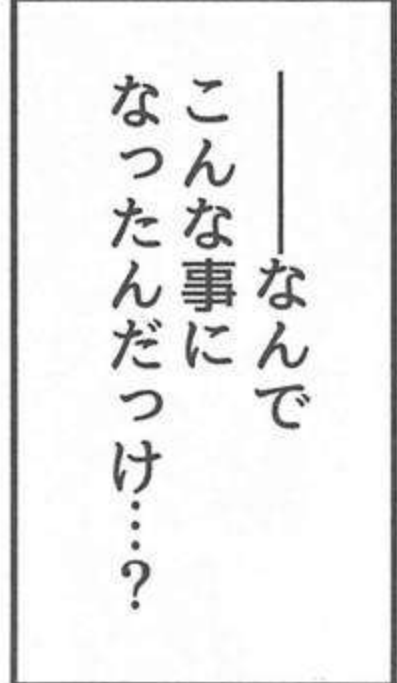 ――なんで
こんな事に
なったんだっけ…?